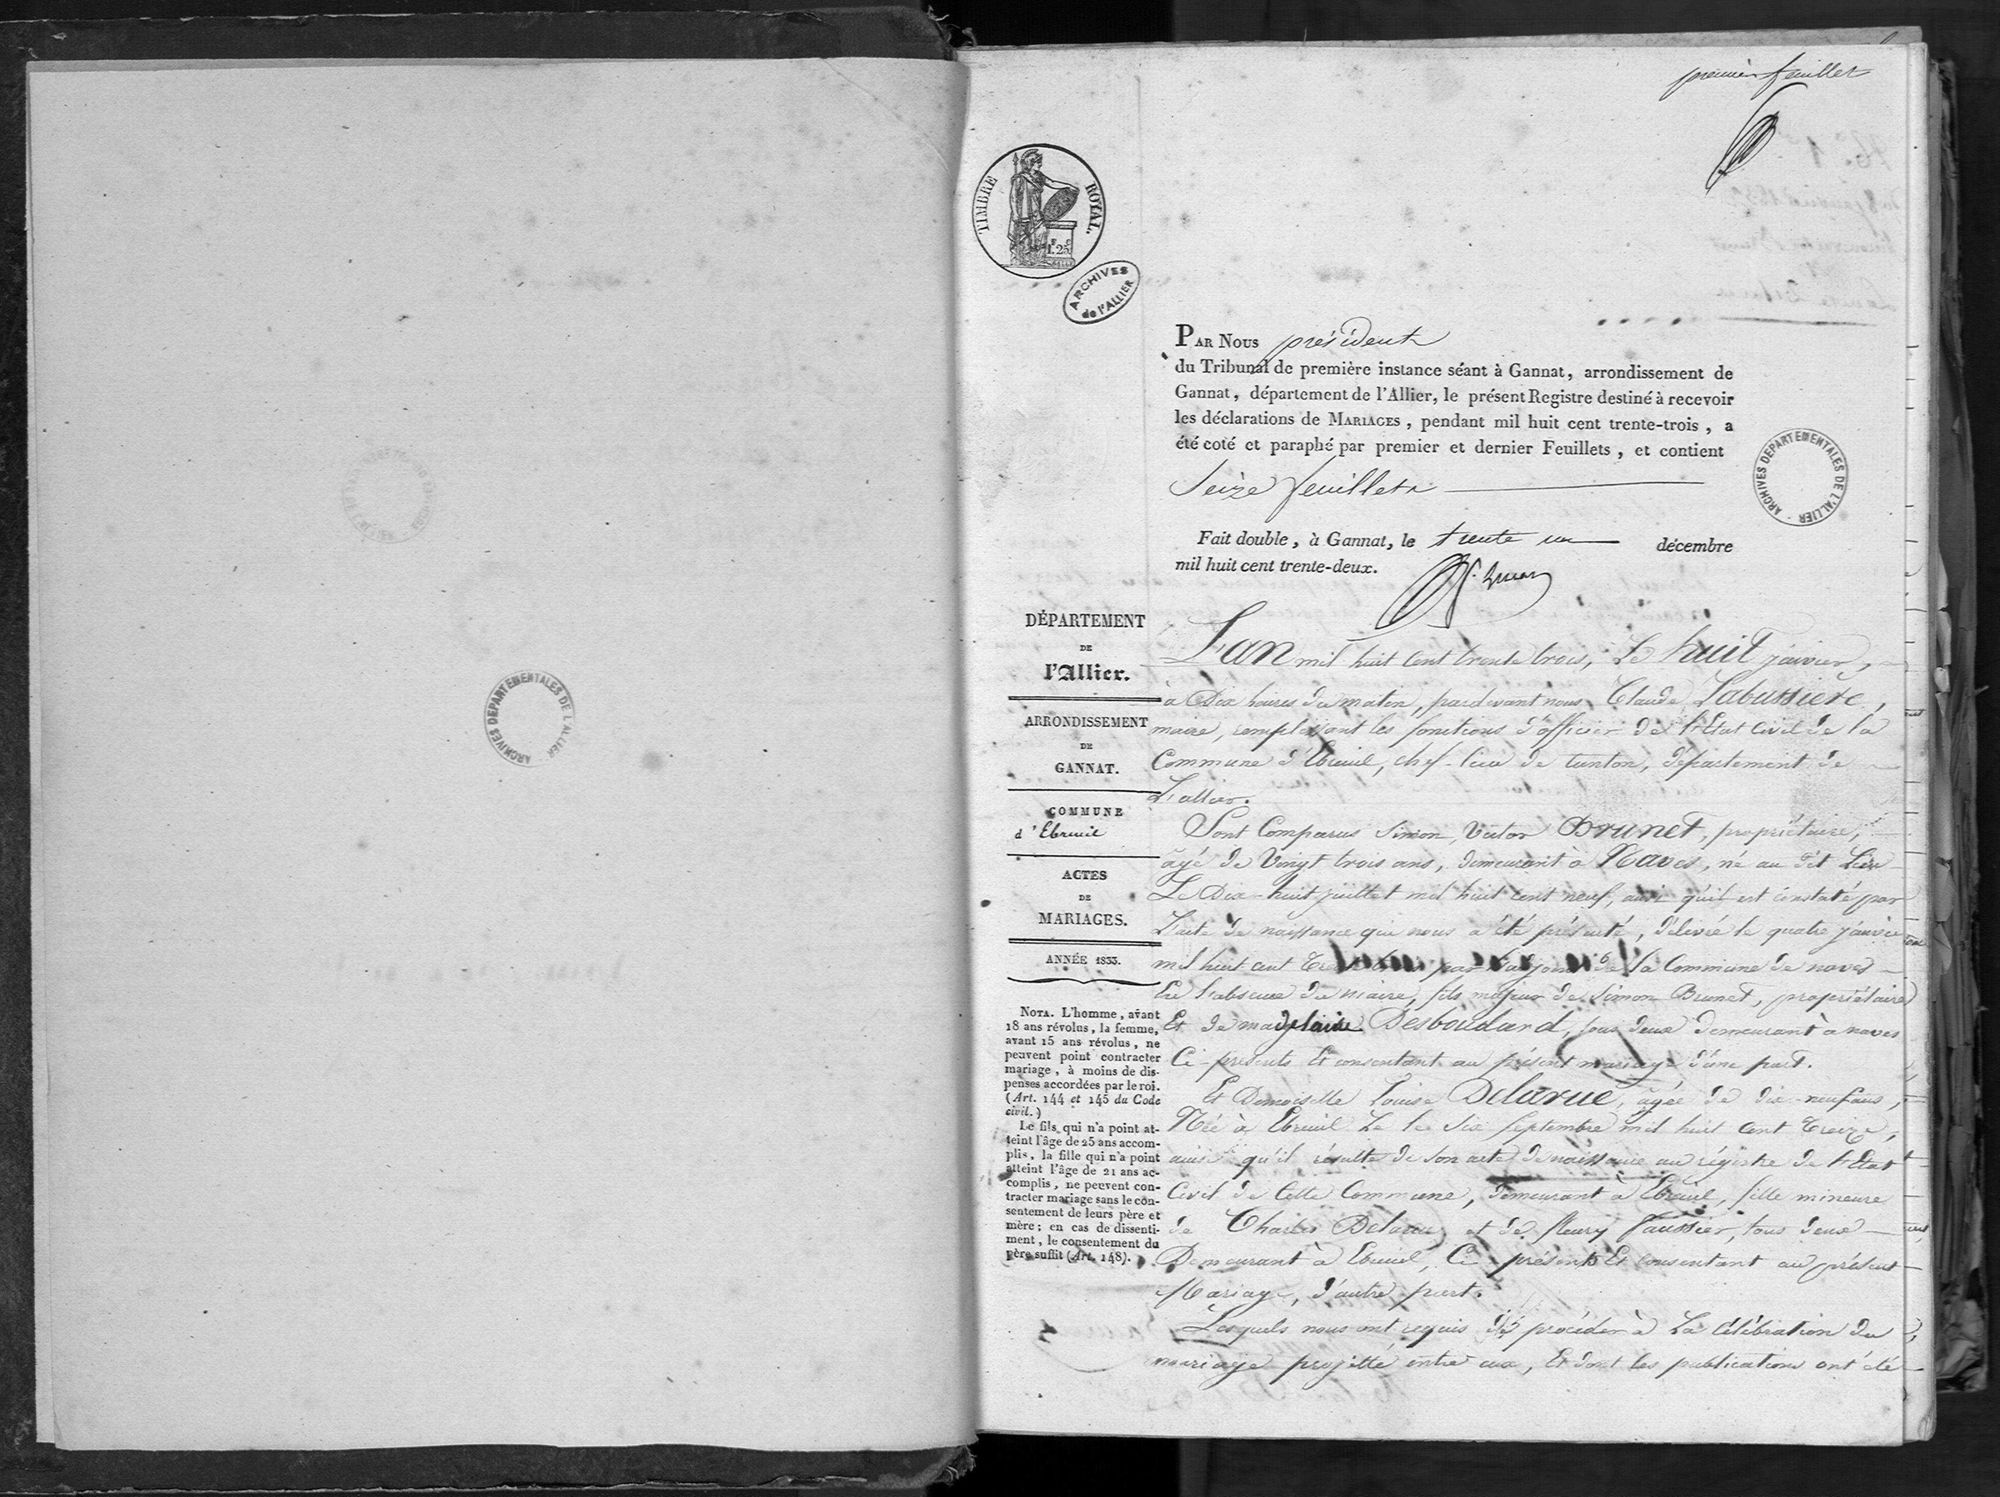 premier feuillet
TIMBRE ROYAL.
1.F 25C
ARCHIVES
de l'ALLIER
PAR NOUS président
du Tribunal de première instance séant à Gannat, arrondissement de
Gannat, département de l'Allier, le présent Registre destiné à recevoir
les déclarations de MARIAGES, pendant mil huit cent trente-trois, a
été coté et paraphé par premier et dernier Feuillets, et contient
Seize feuillets
ARCHIVES DEPARTEMENTALES DE L'ALLIER
Fait double, à Gannat, le trente un décembre
mil huit cent trente-deux.
ARCHIVES DEPARTEMENTALES DE L'ALLIER
DÉPARTEMENT
DE
l'Allier.
ARRONDISSEMENT
DE
GANNAT.
COMMUNE
d'Ebreuil
ACTES
DE
MARIAGES.
ANNÉE 1833.
NOTA. L'homme, avant
18 ans révolus, la femme,
avant 15 ans révolus, ne
peuvent point contracter
mariage, à moins de dis-
penses accordées par le roi.
(Art. 144 et 145 du Code
civil.)
Le fils qui n'a point at-
teint l'âge de 25 ans accom-
plis, la fille qui n'a point
atteint l'âge de 21 ans ac-
complis, ne peuvent con-
tracter mariage sans le con-
sentement de leurs père et
mère; en cas de dissenti-
ment, le consentement du
père suffit (Art. 148).
L'an mil huit cent trente trois, Le huit janvier,
à Dix heures du matin, pardevant nous Claude Labussière,
maire, remplissant les fonctions d'officier de l'Etat Civil de la
Commune d'Ebreuil, chef-lieu de Canton, département de
L'allier.
Sont Comparus Simon, Victor Brunet, propriétaire,
âgé de Vingt trois ans, demeurant à Naves, né au dit Lieu
Le Dix-huit juillet mil huit cent neuf, ainsi qu'il est constaté par
L'acte de naissance qui nous a été présenté, délivré le quatre janvier
mil huit cent par l'adjoint de la Commune de naves
En l'absence du Maire, fils majeur de Simon Brunet, propriétaire
Et de madelaine Desboudard, tous deux demeurant à naves
Ci-présents Et consentant au présent mariage d'une part.
Et Demoiselle Louise Delarue, agée de dix-neuf ans,
Née à Ebreuil Le Six Septembre mil huit cent treize,
ainsi qu'il résulte de son acte de naissance au régistre de l'Etat
Civil de Cette Commune, demeurant à Ebreuil, fille mineure
de Charles Delarue et de fleury faussier, tous deux
Demeurant à Ebreuil, Ci présents Et consentant au présent
Mariage, d'autre part.
Lesquels nous ont requis de procéder à La Célébration du
mariage projetté entre eux, Et dont les publications ont été